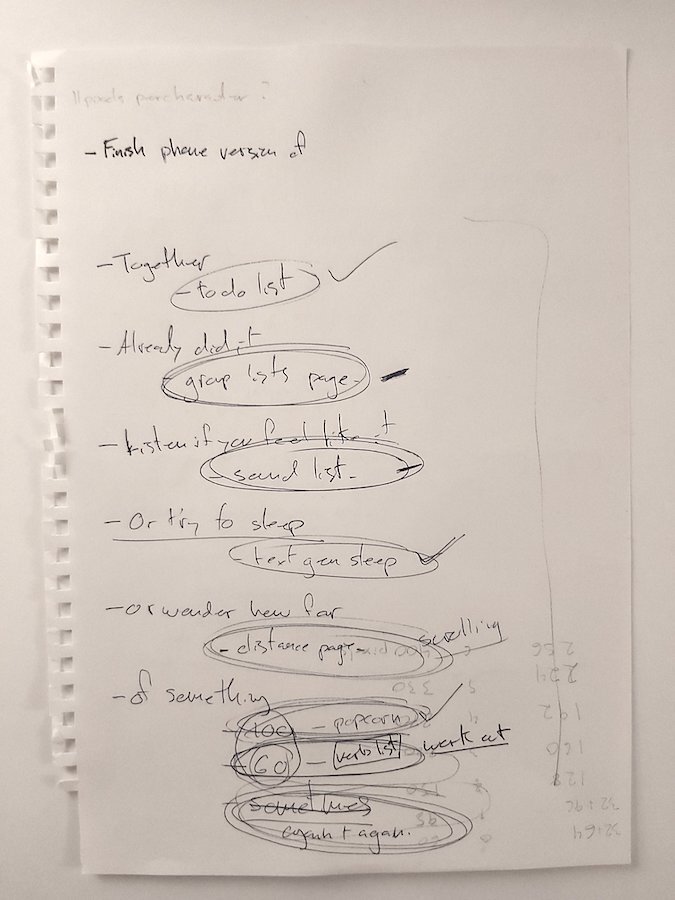 11 pixels per character ?
- Finish phone version of
- Together
- to do list
- Already did it
- group lists page -
- Listen if you feel like it
- sound list -
- Or try to sleep
- text gen sleep
- or wonder how far
- distance page - scrolling
- of something
- popcorn
- GO - verb list work out
- sometimes
count again.
256
224
192
160
128
32+96
32+64
330